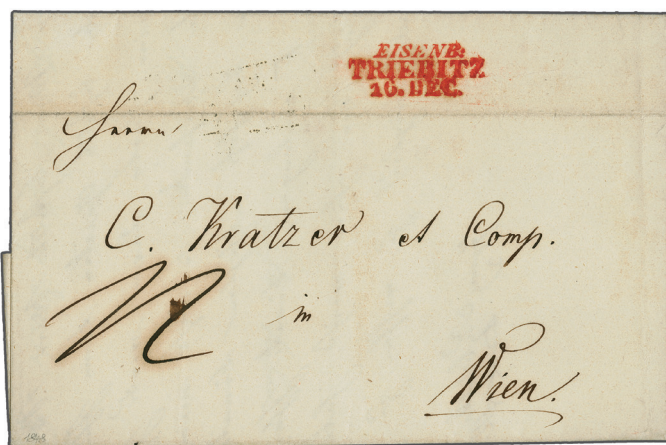 EISENB:
TRIEBITZ
16. DEC.
Herrn
C. Kratzer et Comp.
in
Wien.